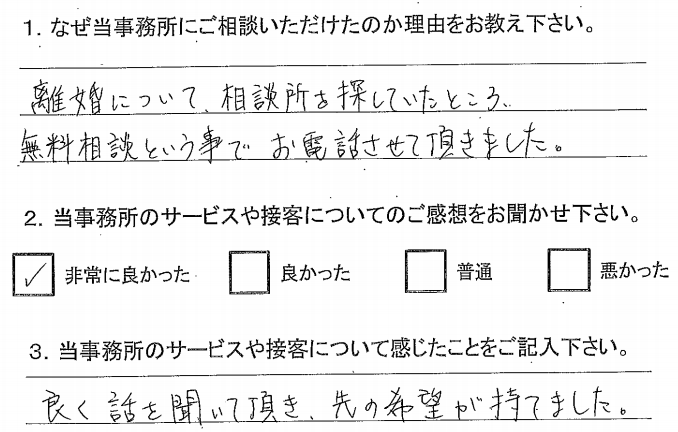 1. なぜ当事務所にご相談いただけたのか理由をお教え下さい。
離婚について、相談所を探していたところ、
無料相談という事でお電話させて頂きました。
2. 当事務所のサービスや接客についてのご感想をお聞かせ下さい。
✓ 非常に良かった 良かった 普通 悪かった
3. 当事務所のサービスや接客について感じたことをご記入下さい。
良く話を聞いて頂き、先の希望が持てました。